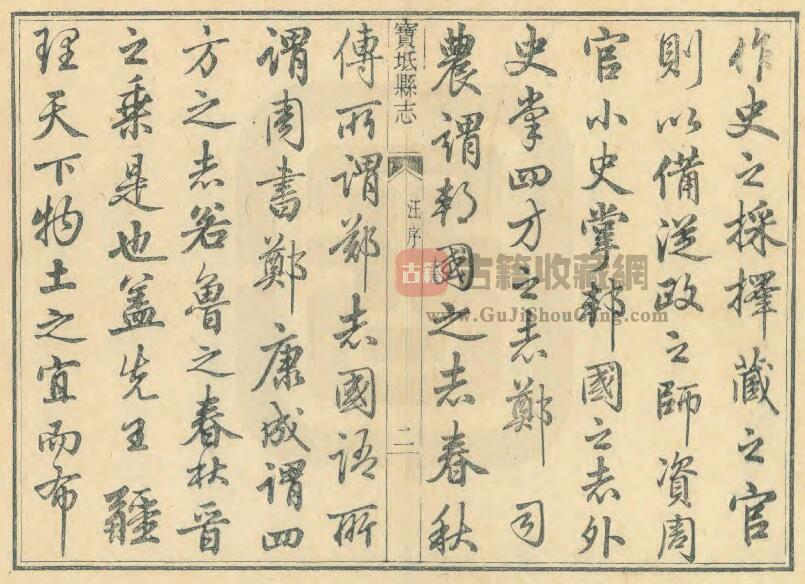 作史之採擇藏之官
則以備從政之師資周
官小史掌邦國之志外
史掌四方之志鄭司
農謂邦國之志春秋
寶坻縣志
汪序
二
傳所謂鄭志國語所
謂周書鄭康成謂四
方之志若魯之春秋晉
之乘是也蓋先王疆
理天下物土之宜而布
古籍
古籍收藏網
www.GuJiShouCang.com